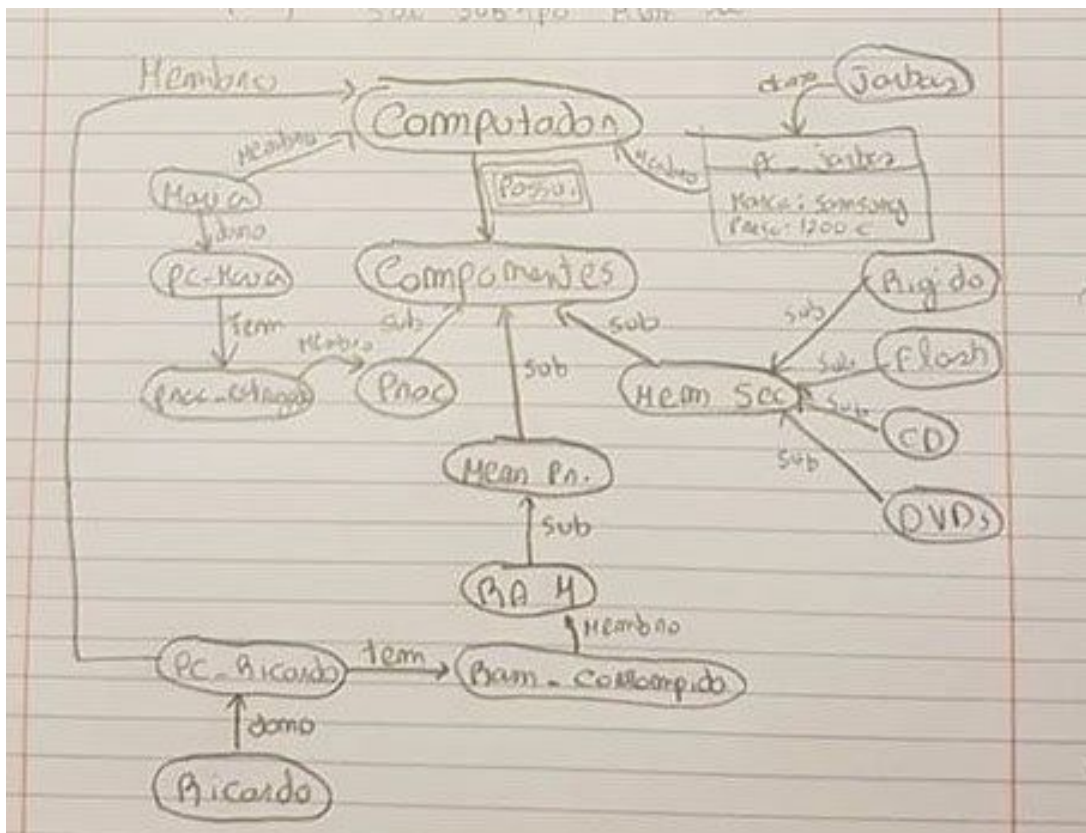 Sub subtipo
Membro
Computador
dono
Jarbas
Membro
Possui
Membro
pc_jarbas
Marca: Samsung
Preço: 1200 €
Maria
dono
PC-Maria
Componentes
Rigido
tem
Membro
sub
sub
sub
sub
Flash
Sub
proc_estragado
Proc
Mem Sec
Sub
CD
sub
DVDs
Mem Pr.
sub
RAM
Membro
PC_Ricardo
tem
Ram_Corrompido
dono
Ricardo